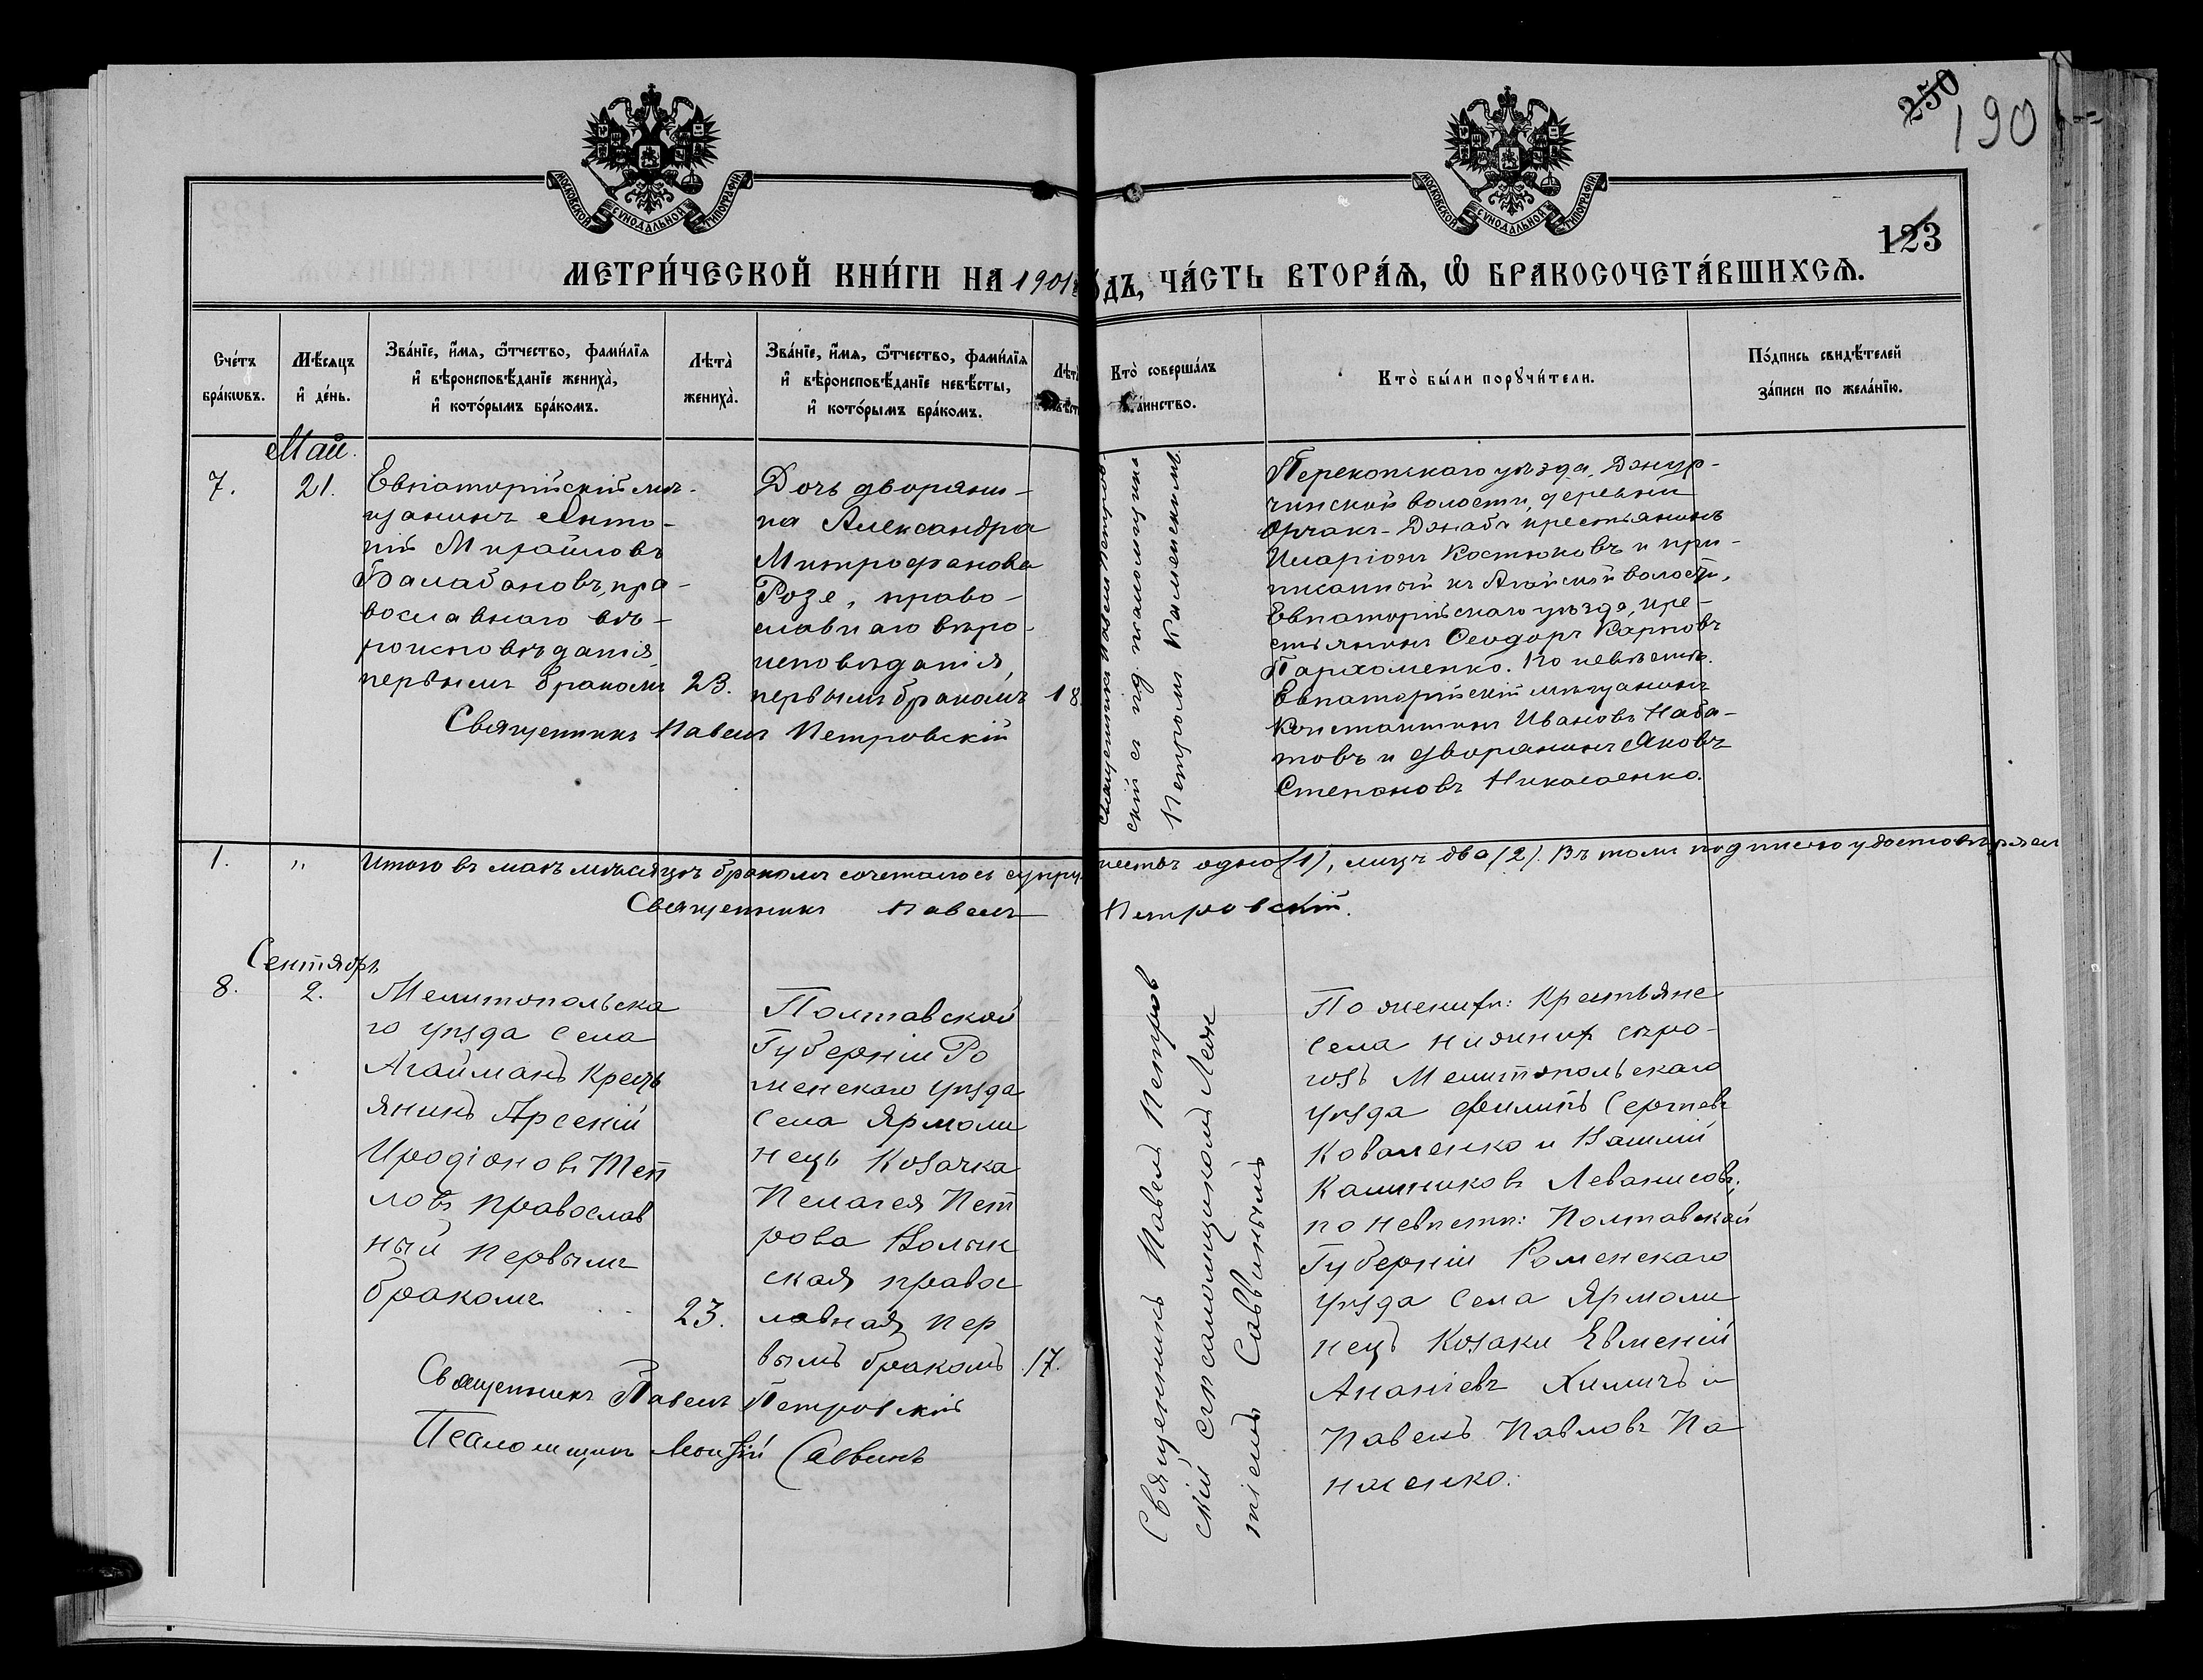 250
190
123
МОСКОВСКОЙ СѴНОДАЛЬНОЙ ТИПОГРАФІИ
МОСКОВСКОЙ СѴНОДАЛЬНОЙ ТИПОГРАФІИ
МЕТРИ́ЧЕСКОЙ КНИ́ГИ НА 1901 ГОДЪ, ЧА́СТЬ ВТОРА́Ѧ, Ѡ҆ БРАКОСОЧЕТА́ВШИХСѦ.
Сче́тъ
бра́кѡвъ.
Мѣ́сѧцъ
и҆ де́нь.
Зва́нїе, и҆́мѧ, ѻ҆́тчество, фами́лїѧ
и҆ вѣроисповѣ́данїе жениха̀,
и҆ кото́рымъ бра́комъ.
Лѣта̀
жениха̀.
Зва́нїе, и҆́мѧ, ѻ҆́тчество, фами́лїѧ
и҆ вѣроисповѣ́данїе невѣ́сты,
и҆ кото́рымъ бра́комъ.
Лѣта̀
Кто̀ соверша́лъ
таинство.
Кто̀ бы́ли порꙋчи́тели.
По́дпись свидѣ́телей
за́писи по жела́нїю.
Май.
7.
21.
Евпаторійскій мѣ-
щанинъ Анто-
ній Михайловъ
Балабановъ, пра-
вославнаго вѣ-
роисповѣданія,
первымъ бракомъ
23.
Дочь дворяни-
на Александра
Митрофанова
Розе, право-
славнаго вѣро-
исповѣданія,
первымъ бракомъ
18.
Священникъ Павелъ Петров-
скій съ и. д. псаломщика
Петромъ Каменскимъ
Перекопскаго уѣзда, Джур-
чинской волости, деревни
Орчакъ-Джаба крестьянинъ
Иларіонъ Костюковъ и при-
писанный къ Агайской волости,
Евпаторійскаго уѣзда, кре-
стьянинъ Ѳеодоръ Карповъ
Пархоменко. По невѣстѣ:
Евпаторійскій мѣщанинъ
Константинъ Ивановъ Наба-
товъ и дворянинъ Яковъ
Степановъ Николаенко.
Священникъ Павелъ Петровскій
1.
"
Итого въ маѣ мѣсяцѣ бракомъ сочеталось супружествъ одно (1), лицъ два (2). Въ томъ подписью удостовѣряемъ
Священникъ Павелъ Петровскій.
Сентябрь
8.
2.
Мелитопольска
го уѣзда села
Агайманъ Крестъ
янинъ Арсеній
Иродіоновъ Теп
ловъ православ
ный первымъ
бракомъ
23.
Полтавской
Губерніи Ро
менскаго уѣзда
Села Ярмоли
нецъ Козачка
Пелагея Пет
рова Волын
ская право
лавная пер
вымъ бракомъ
17.
Священникъ Павелъ Петров
скій съ псаломщикомъ Леон
тіемъ Саввинымъ
По жениху: Крестьяне
Села Нижнихъ Сѣро-
гозъ Мелитопольскаго
уѣзда Филипъ Сергѣевъ
Коваленко и Василій
Калиниковъ Леванисовъ;
по невѣстѣ: Полтавской
Губерніи Роменскаго
уѣзда Села Ярмоли
нецъ Козаки Евменій
Ананіевъ Химичъ и
Павелъ Павловъ Па
насенко.
Священникъ Павелъ Петровскій
Псаломщикъ Леонтій Саввинъ